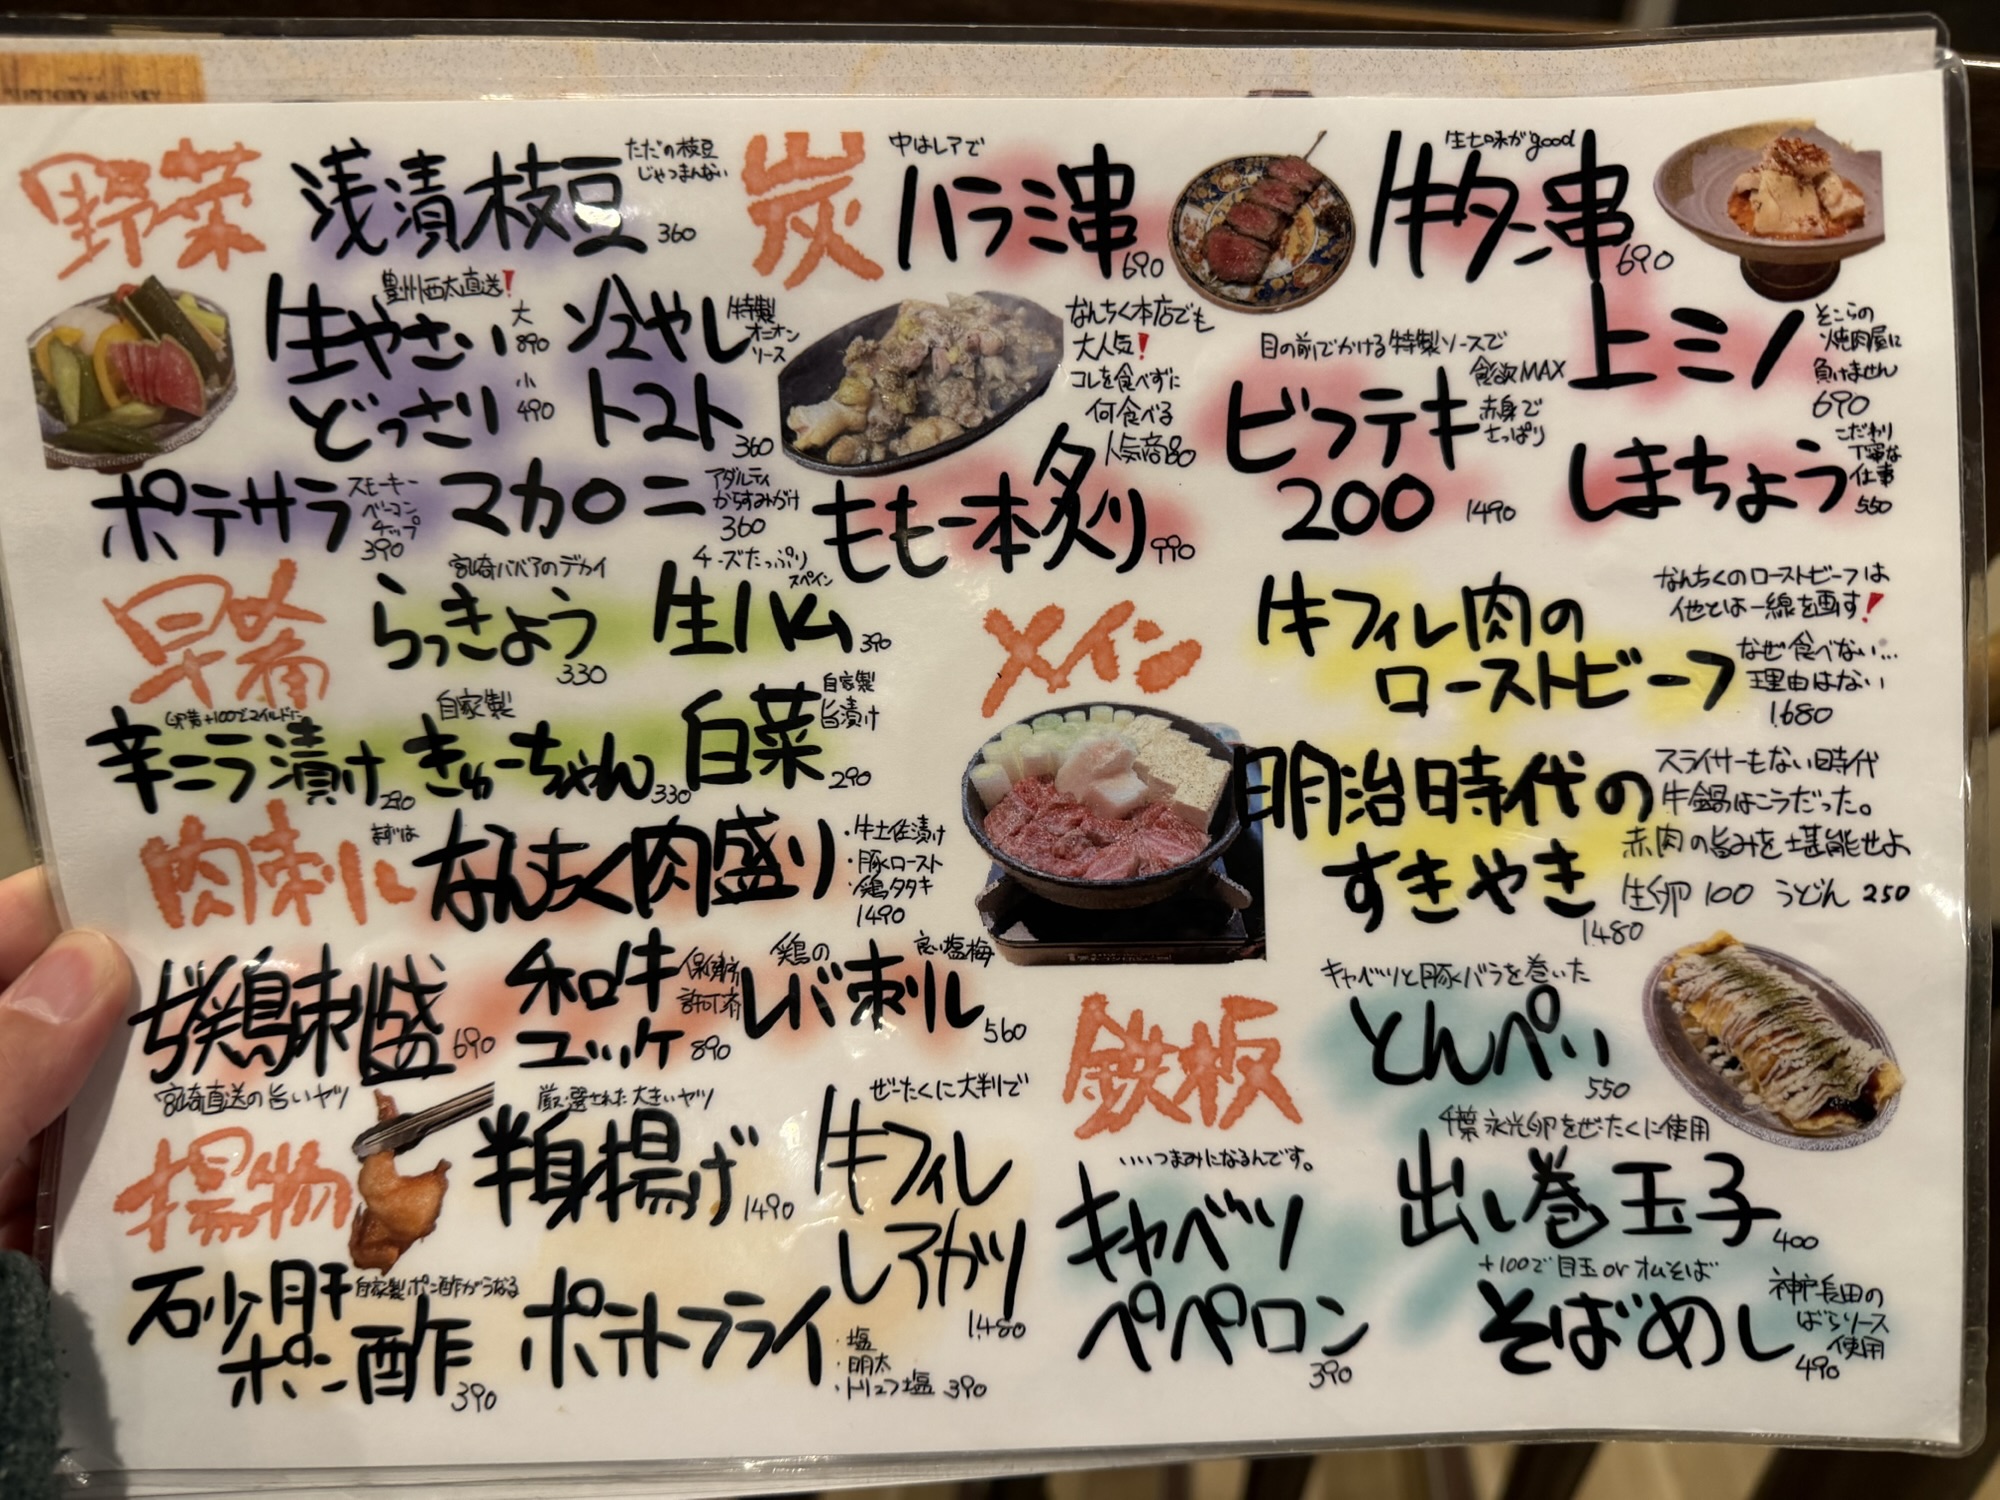 野菜
浅漬枝豆
ただの枝豆
じゃつまんない
360
豊州西太直送!
生やさい
どっさり
大
890
小
490
冷やし
トマト
特製
オニオン
ソース
360
ポテサラ
スモーキー
ベーコン
チップ
390
マカロニ
アダルティ
からすみがけ
360
炭
中はレアで
ハラミ串
690
生七味がgood
牛タン串
690
なんちく本店でも
大人気!
コレを食べずに
何食べる
人気商品
もも一本炙り
990
目の前でかける特製ソースで
食欲MAX
ビフテキ
200
赤身で
さっぱり
1490
上ミノ
そこらの
焼肉屋に
負けません
690
しまちょう
こだわり
丁寧な
仕事
550
早い肴
宮崎ババアのデカイ
らっきょう
330
チーズたっぷり
スペイン
生ハム
390
卵黄+100でマイルドに
辛ニラ漬け
290
自家製
きゅーちゃん
330
白菜
自家製
旨漬け
290
肉刺し
まずは
なんちく肉盛り
・牛土佐漬け
・豚ロースト
・鶏タタキ
1490
鶏刺し盛
690
宮崎直送の旨いヤツ
和牛
ユッケ
保健所
許可済
890
鶏の
レバ刺し
良い塩梅
560
メイン
牛フィレ肉の
ローストビーフ
なんちくのローストビーフは
他とは一線を画す!
なぜ食べない...
理由はない
1.680
明治時代の
すきやき
スライサーもない時代
牛鍋はこうだった。
赤肉の旨みを堪能せよ
生卵 100 うどん 250
1.480
揚物
厳選された大きいヤツ
半身揚げ
1490
ぜーたくに大判で
牛フィレ
レアカツ
1.480
砂肝
ポン酢
自家製ポン酢がうなる
390
ポテトフライ
・塩
・明太
・トリュフ塩 390
鉄板
キャベツと豚バラを巻いた
とんぺい
550
いいつまみになるんです。
キャベツ
ペペロン
390
千葉永光卵をぜーたくに使用
出し巻玉子
400
+100で目玉orオムそば
そばめし
神戸長田の
ばらソース
使用
490